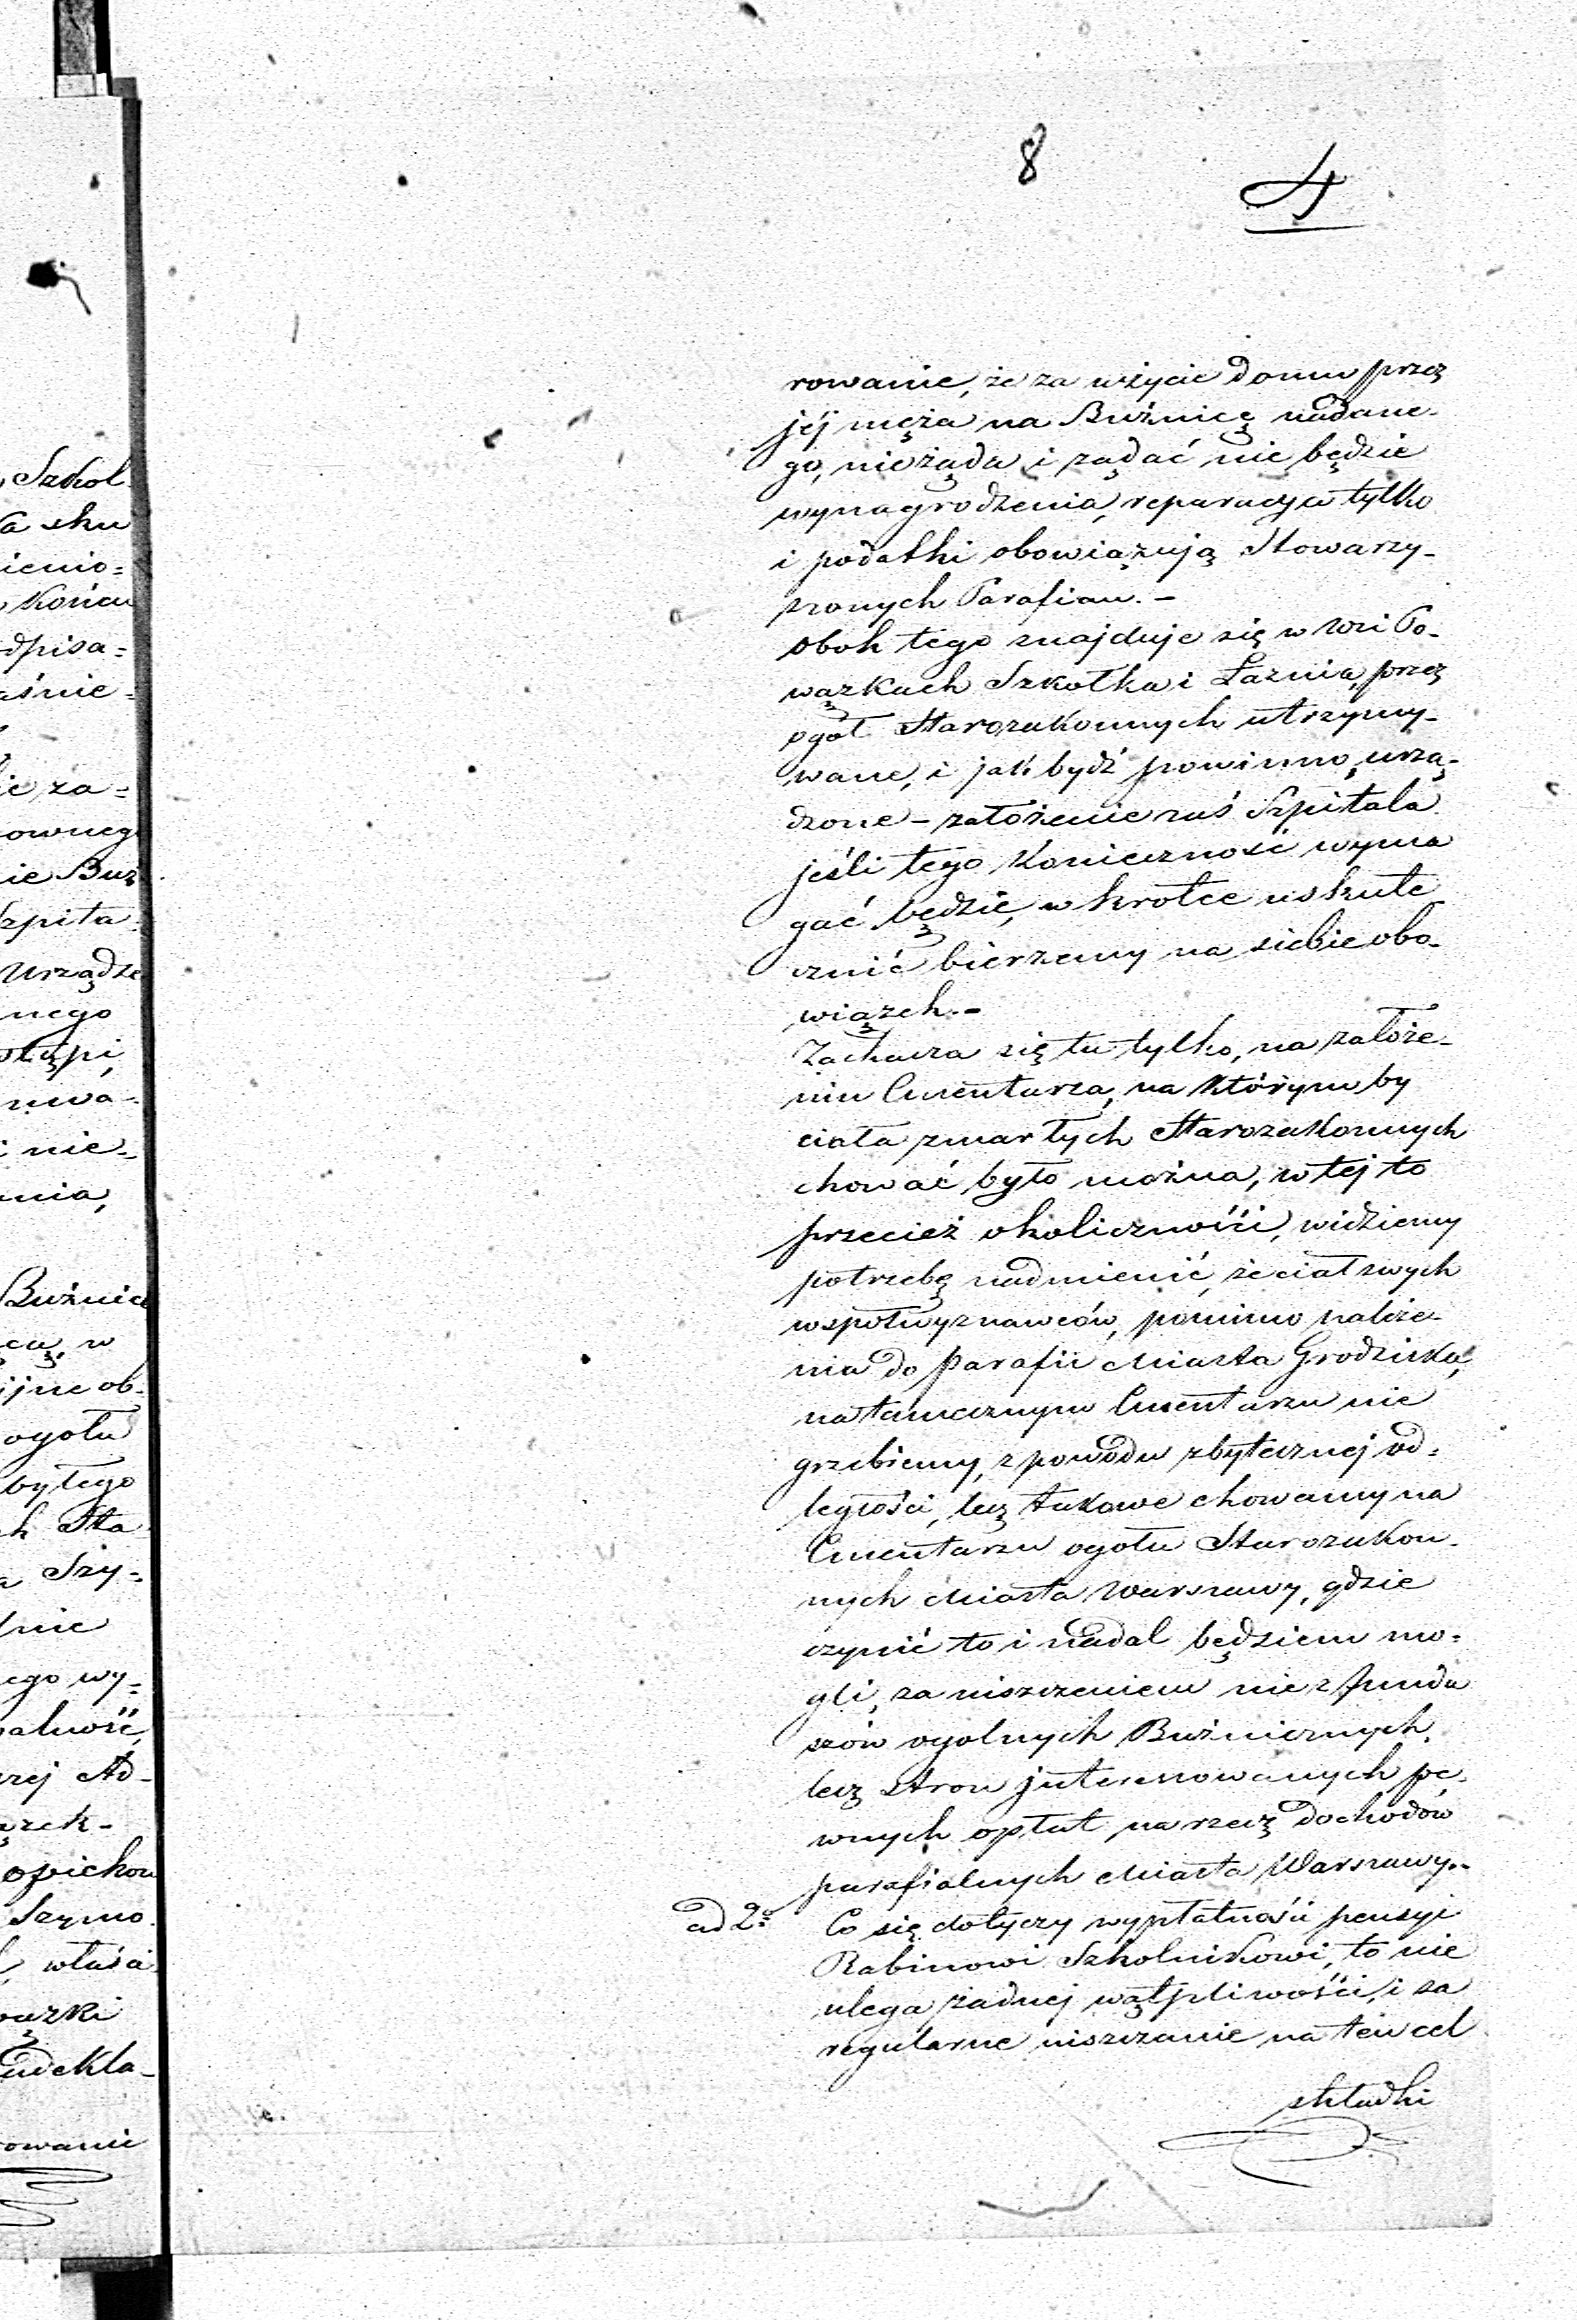 8
4
rowanie, że za użycie domu przez
jéj męża na Buźnicę nadane-
go, nieżąda i żądać nie będzie
wynagrodzenia, reparacyа tylko
i podatki obowiązują Stowarzy-
szonych Parafian. -
obok tego znajduje się w Wsi Po-
wązkach Szkołka i Łaznia, przez
ogół Starozakonnych utrzymy-
wane, i jak bydź powinno urzą-
dzone - założenie zaś Szpitala
jeśli tego Konieczność wyma
gać będzie, w krotce uskute
cznić bierzemy na siebie obo-
wiązek. -
Zachacza się tu tylko, na załoze-
niu Cmentarza, na Którym by
ciała zmarłych Starozakonnych
chować było można, w tej to
przecież okoliczności, widziemy
potrzebę nadmienić, że ciał swych
wspołwyznawców, pomimo należe-
nia do Parafii Miasta Grodziska,
na tamecznym Cmentarzu nie
grzebiemy, z powodu zbytecznej od=
ległości, lecz takowe chowamy na
Cmentarzu ogołu Starozakon-
nych Miasta Warszawy, gdzie
czynić to i nadal będziem mo=
gli, za uiszczeniem nie z fundu
szów ogolnych Buźnicznych,
lecz stron jnteressowanych pe-
wnych opłat na rzecz dochodów
parafialnych Miasta Warszawy. -
ad 2o Co się dotyczy wypłatności pensyi
Rabinowi Szkolnikowi, to nie
ulega żadnej wątpliwości, i za
regularne uiszczanie na ten cel
składki